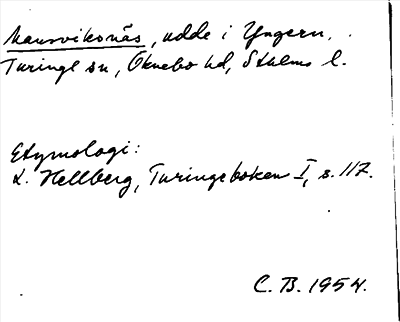 Mansviksnäs, udde i Yngern,
Turinge sn, Öknebo hd, Sthlms l.
Etymologi:
L. Hellberg, Turingeboken I, s. 117.
C. B. 1954.